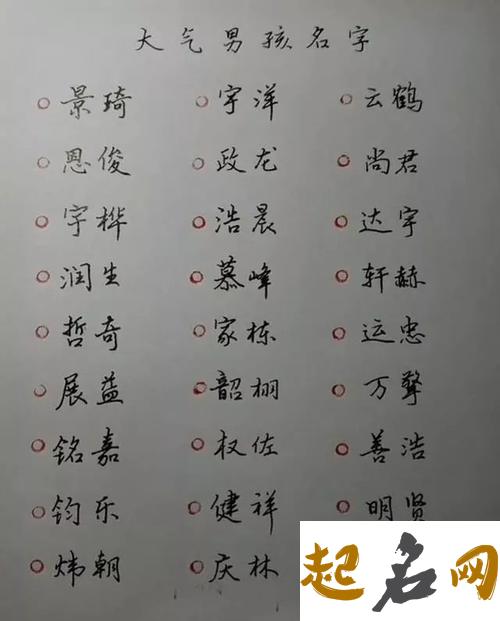 大气男孩名字
景琦 宇洋 云鹤
恩俊 政龙 尚君
宇桦 浩晨 达宇
润生 慕峰 轩赫
哲奇 家栋 运忠
展益 韶栩 万
铭嘉 权佐 善浩
钧乐 健祥 明贤
炜朝 庆林
起名网